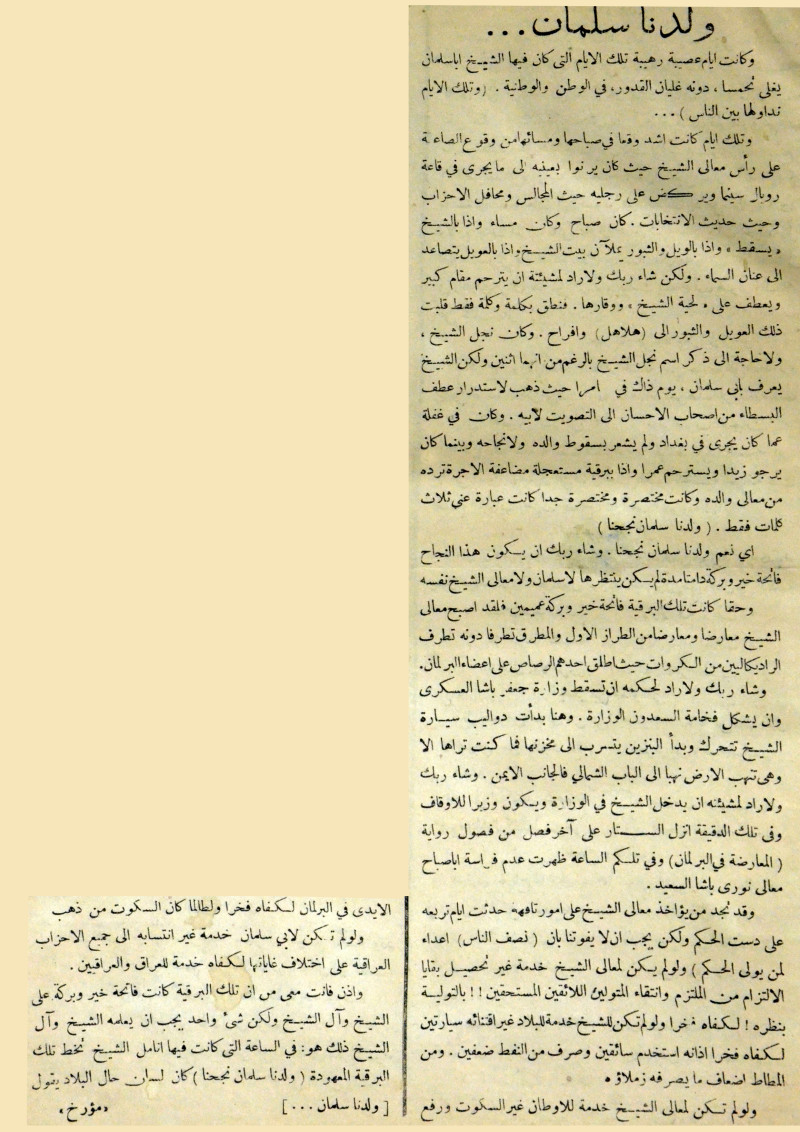 ولدنا سلمان...
وكانت ايام عصيبة رهيبة تلك الايام التى كان فيها الشيخ اباسلمان
يغلى تحمسا ، دونه غليان القدور، في الوطن والوطنية . (وتلك الايام
نداولها بين الناس) ...
وتلك ايام كانت اشد وقعا في صباحها ومسائها من وقوع الصاعقة
على رأس معالى الشيخ حيث كان يرنوا بعينيه الى ما يجرى في قاعة
رويال سينما ويركض على رجليه حيث المجالس ومحافل الاحزاب
وحيث حديث الانتخابات . كان صباح وكان مساء واذا بالشيخ
« يسقط » واذا بالويل والثبور يملآن بيت الشيخ واذا بالعويل يتصاعد
الى عنان السماء . ولكن شاء ربك ولاراد لمشيئته ان يترحم مقام كبير
ويعطف على « لحية الشيخ » ووقارها . فنطق بكلمة وكلمة فقط قلبت
ذلك العويل والثبور الى (هلاهل) وافراح . وكان نجل الشيخ ،
ولاحاجة الى ذكر اسم نجل الشيخ بالرغم من انهما اثنين ولكن الشيخ
يعرف بابي سلمان ، يوم ذاك في امرا حيث ذهب لاستدرار عطف
البسطاء من اصحاب الاحسان الى التصويت لابيه . وكان في غفلة
عما كان يجرى في بغداد ولم يشعر بسقوط والده ولانجاحه وبينما كان
يرجو زيدا ويسترحم عمرا واذا ببرقية مستعجلة مضاعفة الاجرة ترده
من معالى والده وكانت مختصرة ومختصرة جدا كانت عبارة عنى ثلاث
كلمات فقط . ( ولدنا سلمان نجحنا )
اي نعم ولدنا سلمان نجحنا . وشاء ربك ان يكون هذا النجاح
فاتحة خير وبركة دامتا مدة لم يكن ينتظرها لاسلمان ولامعالى الشيخ نفسه
وحقا كانت تلك البرقية فاتحة خير وبركة عميمين فلقد اصبح معالى
الشيخ معارضا ومعارضا من الطراز الاول والمطرق تطرفا دونه تطرف
الراديكاليين من الكروات حيث اطلق احدهم الرصاص على اعضاء البرلمان.
وشاء ربك ولاراد لحكمه ان تسقط وزارة جعفر باشا العسكرى
وان يشكل فخامة السعدون الوزارة . وهنا بدأت دواليب سيارة
الشيخ تتحرك وبدأ البنزين يتسرب الى مخزنها فما كنت تراها الا
وهى تنهب الارض نهبا الى الباب الشمالي فالجانب الايمن . وشاء ربك
ولاراد لمشيئته ان يدخل الشيخ في الوزارة ويكون وزيرا للاوقاف
وفى تلك الدقيقة انزل الستار على آخر فصل من فصول رواية
( المعارضة في البرلمان ) وفي تلكم الساعة ظهرت عدم فراسة اباصباح
معالى نورى باشا السعيد .
وقد نجد من يؤاخذ معالى الشيخ على امور تافهة حدثت ايام تربعه
على دست الحكم ولكن يجب ان لا يفوتنا بان ( نصف الناس ) اعداء
لمن يولى الحكم ) ولولم يكن لمعالى الشيخ خدمة غير تحصيل بقايا
الالتزام من الملتزم وانتقاء المتولين اللائقين المستحقين !! بالتولية
بنظره ! لكفاه فخرا ولولم تكن للشيخ خدمة للبلاد غير اقتنائه سيارتين
لكفاه فخرا اذانه استخدم سائقين وصرف من النفط ضعفين . ومن
المطاط اضعاف ما يصرفه زملاؤه .
ولولم تكن لمعالى الشيخ خدمة للاوطان غير السكوت ورفع
الايدى في البرلمان لكفاه فخرا ولطالما كان السكوت من ذهب
ولولم تكن لابي سلمان خدمة غير انتسابه الى جميع الاحزاب
العراقية على اختلاف غاياتها لكفاه خدمة للعراق والعراقيين .
واذن فانت معى من ان تلك البرقية كانت فاتحة خير وبركة على
الشيخ وآل الشيخ ولكن شئ واحد يجب ان يعلمه الشيخ وآل
الشيخ ذلك هو: في الساعة التى كانت فيها انامل الشيخ تخط تلك
البرقية المعهودة ( ولدنا سلمان نجحنا ) كان لسان حال البلاد يقول
[ ولدنا سلمان ... ]
«مؤرخ»